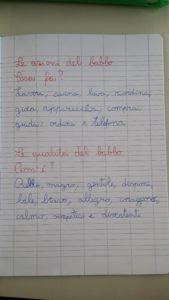 Le azioni del babbo
Cosa fa?
Lavora, cucina, lava, riordina,
gioca, apparecchia, compra,
guida, ordina e telefona.
Le qualità del babbo
Com'è?
Bello, magro, gentile,
bravo, allegro, coraggioso,
calmo, e divertente